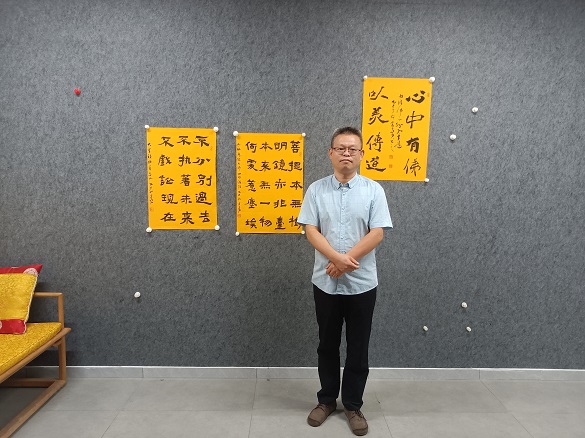 不分别過去
不执著未来
不戲論現在
菩提本無樹
明鏡亦非臺
本来無一物
何處惹塵埃
心中有佛
以美傳道